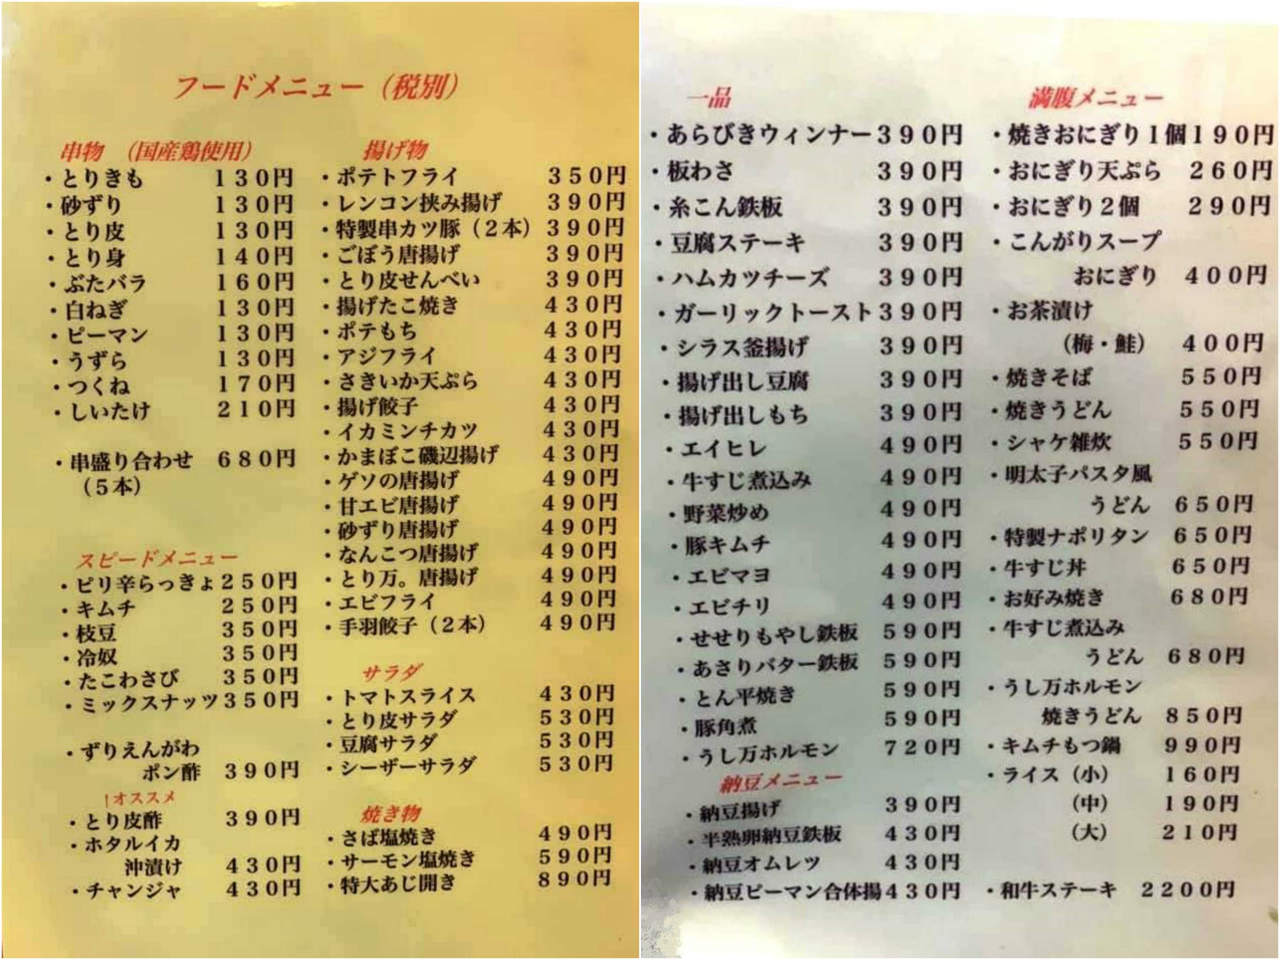 フードメニュー（税別）
串物 （国産鶏使用）
・とりきも 130円
・砂ずり 130円
・とり皮 130円
・とり身 140円
・ぶたバラ 160円
・白ねぎ 130円
・ピーマン 130円
・うずら 130円
・つくね 170円
・しいたけ 210円
・串盛り合わせ 680円
（5本）
スピードメニュー
・ピリ辛らっきょ 250円
・キムチ 250円
・枝豆 350円
・冷奴 350円
・たこわさび 350円
・ミックスナッツ 350円
・ずりえんがわ
ポン酢 390円
↑オススメ
・とり皮酢 390円
・ホタルイカ
沖漬け 430円
・チャンジャ 430円
揚げ物
・ポテトフライ 350円
・レンコン挟み揚げ 390円
・特製串カツ豚（2本） 390円
・ごぼう唐揚げ 390円
・とり皮せんべい 390円
・揚げたこ焼き 430円
・ポテもち 430円
・アジフライ 430円
・さきいか天ぷら 430円
・揚げ餃子 430円
・イカミンチカツ 430円
・かまぼこ磯辺揚げ 430円
・ゲソの唐揚げ 490円
・甘エビ唐揚げ 490円
・砂ずり唐揚げ 490円
・なんこつ唐揚げ 490円
・とり万。唐揚げ 490円
・エビフライ 490円
・手羽餃子（2本） 490円
サラダ
・トマトスライス 430円
・とり皮サラダ 530円
・豆腐サラダ 530円
・シーザーサラダ 530円
焼き物
・さば塩焼き 490円
・サーモン塩焼き 590円
・特大あじ開き 890円
一品
・あらびきウィンナー 390円
・板わさ 390円
・糸こん鉄板 390円
・豆腐ステーキ 390円
・ハムカツチーズ 390円
・ガーリックトースト 390円
・シラス釜揚げ 390円
・揚げ出し豆腐 390円
・揚げ出しもち 390円
・エイヒレ 490円
・牛すじ煮込み 490円
・野菜炒め 490円
・豚キムチ 490円
・エビマヨ 490円
・エビチリ 490円
・せせりもやし鉄板 590円
・あさりバター鉄板 590円
・とん平焼き 590円
・豚角煮 590円
・うし万ホルモン 720円
納豆メニュー
・納豆揚げ 390円
・半熟卵納豆鉄板 430円
・納豆オムレツ 430円
・納豆ピーマン合体揚 430円
満腹メニュー
・焼きおにぎり1個 190円
・おにぎり天ぷら 260円
・おにぎり2個 290円
・こんがりスープ
おにぎり 400円
・お茶漬け
（梅・鮭） 400円
・焼きそば 550円
・焼きうどん 550円
・シャケ雑炊 550円
・明太子パスタ風
うどん 650円
・特製ナポリタン 650円
・牛すじ丼 650円
・お好み焼き 680円
・牛すじ煮込み
うどん 680円
・うし万ホルモン
焼きうどん 850円
・キムチもつ鍋 990円
・ライス（小） 160円
（中） 190円
（大） 210円
・和牛ステーキ 2200円